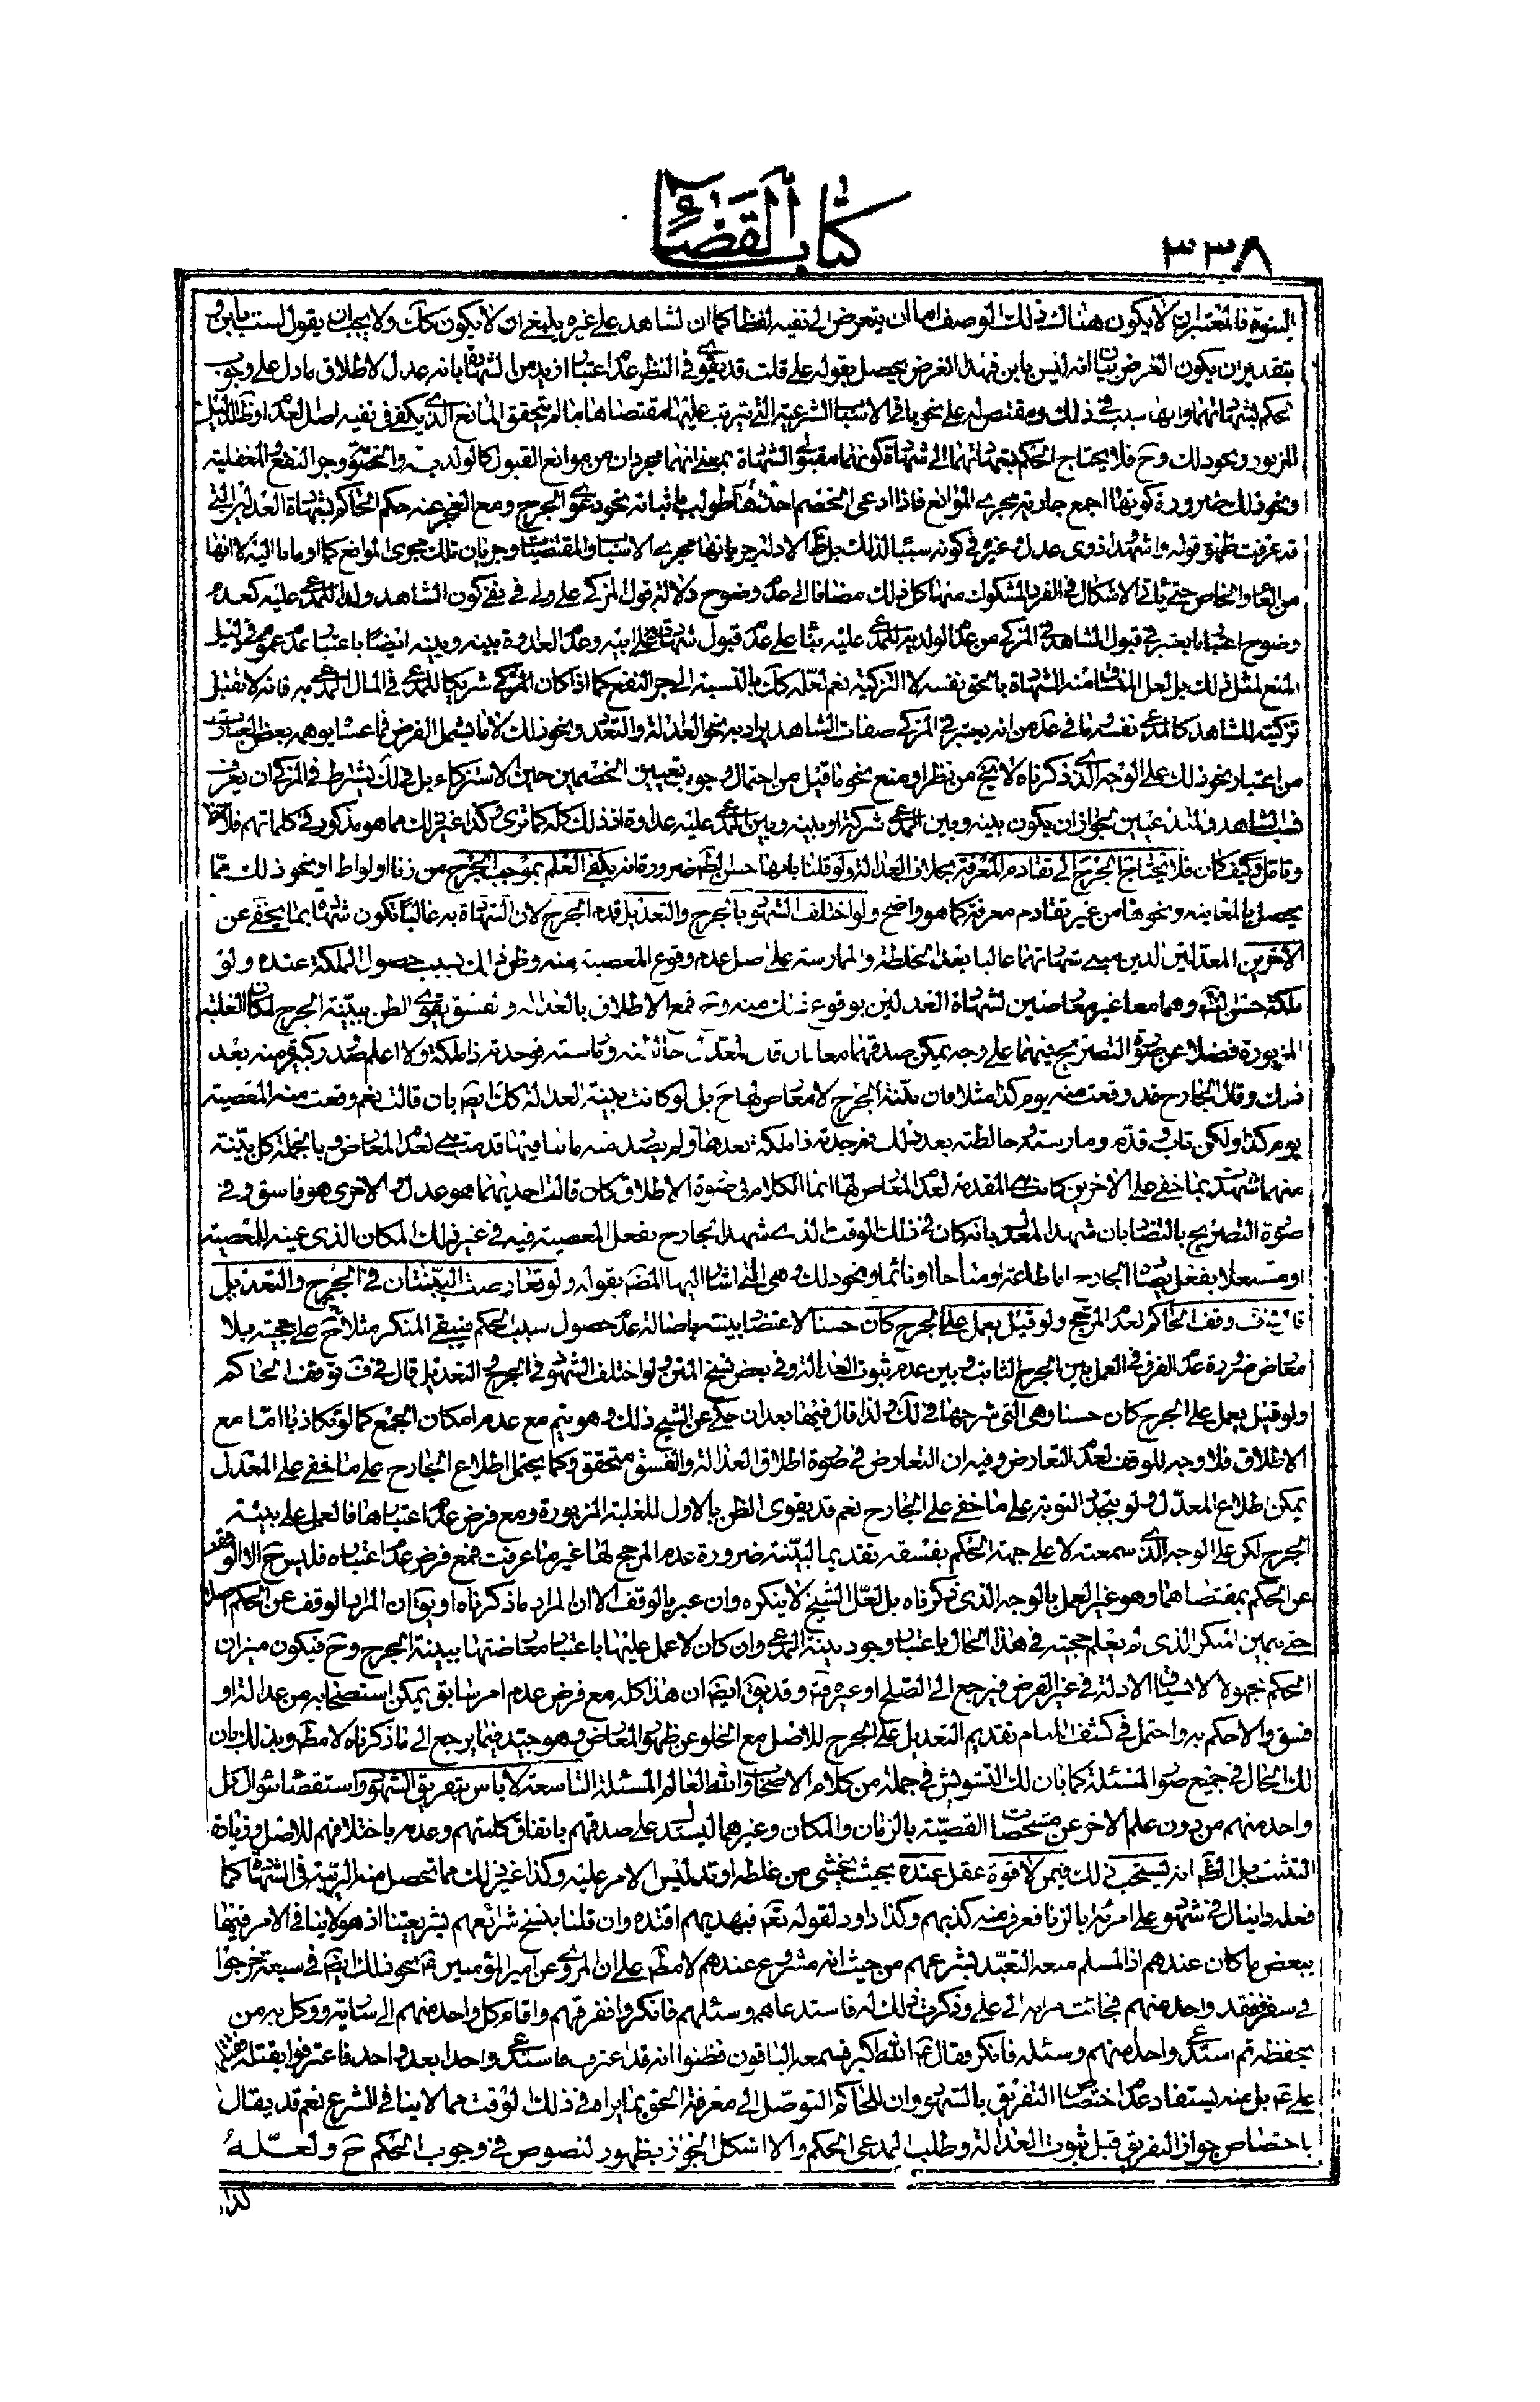 ٣٣٨
كتاب القضاء
البنوة فالمعتبر ان لا يكون هناك ذلك الوصف اما ان يتعرض الى نفيه لفظا كما ان الشاهد على غيره ينبغي ان لا يكون كك ولا يجب ان يقول لست بابن و
بتقدير ان يكون الغرض بيان انه ليس بابن فهذا الغرض يحصل بقوله على قلت قد يقوى في النظر عدم اعتبار ازيد من الشهادة بانه عدل لاطلاق ما دل على وجوب
الحكم بشهادتهما وانها سبب في ذلك ومقتض له على نحو باقي الاسباب الشرعية التي يترتب عليها مقتضاها ما لم يتحقق المانع الذي يكفي في نفيه اصل العدم او ظاهر الدليل
المزبور ونحو ذلك وح فلا يحتاج الحكم بشهادتهما الى شهادة كونهما مقبولي الشهادة بمعنى انهما مجردان من موانع القبول كالولدية والخصومة وجر النفع والمغفلية
ونحو ذلك ضرورة كونها اجمع جارية مجرى الموانع فاذا ادعى الخصم احدها طولب باثباته نحو دعوى الجرح ومع العجز عنه حكم الحاكم بشهادة العدلين التي
قد عرفت ظهور قوله واشهدوا ذوى عدل وغيره في كونه سببا لذلك بل ظ الادلة جريانها مجرى الاسباب والمقتضيات وجريان تلك مجرى الموانع كما اومأنا اليه لا انها
من العام والخاص حتى يأتي الاشكال في الفرد المشكوك منها كل ذلك مضافا الى عدم وضوح دلالة قول المزكي على ولى في نفي كون الشاهد ولدا للمدعى عليه كعدم
وضوح اعتبار ما يعتبر في قبول الشاهد في المزكي من عدم الولدية للمدعى عليه بناء على عدم قبول شهادته على ابيه وعدم العداوة بينه وبينه ايضا باعتبار عدم عموم في دليل
المنع لمثل ذلك بل لعل المنساق منه الشهادة بالحق نفسه لا التزكية نعم لعله كك بالنسبة الى جر النفع كما اذا كان المزكي شريكا للمدعى في المال المدعى به فانه لا تقبل
تزكيته للشاهد كالمدعى نفسه فما في عد من انه يعتبر في المزكي صفات الشاهد يراد به نحو العدالة والتعدد ونحو ذلك لا ما يشمل الفرض فما عساه يوهمه بعض العبارات
من اعتبار نحو ذلك على الوجه الذي ذكرناه لا يخ من نظر او منع نحو ما قيل من احتمال وجوب تعيين الخصمين حين الاستزكاء بل في لك يشترط في المزكي ان يعرف
نسب الشاهد والمتداعيين لجواز ان يكون بينه وبين المدعى شركة او بينه وبين المدعى عليه عداوة اذ ذلك كله كما ترى وكذا غير ذلك مما هو مذكور في كلماتهم فلاحظ
وتأمل وكيف كان فلا يحتاج الجرح الى تقادم المعرفة بخلاف العدالة ولو قلنا بانها حسن الظ ضرورة انه يكفي العلم بموجب الجرح من زنا او لواط او نحو ذلك مما
يحصل بالمعاينة ونحوها من غير تقادم معرفة كما هو واضح ولو اختلف الشهود بالجرح والتعديل قدم الجرح لان الشهادة به غالبا تكون شهادة بما يخفى عن
الاخرين المعدلين الذين مبنى شهادتهما غالبا بعد الخلطة والممارسة على اصل عدم وقوع المعصية منه وظن ذلك بسبب حصول الملكة عنده ولو
ملكة حسن الظ وهما معا غير معارضين لشهادة العدلين بوقوع ذلك منه وح فمع الاطلاق بالعدالة والفسق يقوى الظن ببينة الجرح لمكان الغلبة
المزبورة فضلا عن صورة التصريح فيهما على وجه يمكن صدقهما معا بان قال المعدل خالطته ومارسته فوجدته ذا ملكة ولا اعلم صدور كبيرة منه بعد
ذلك وقال الجارح قد وقعت منه يوم كذا مثلا فان بينة الجرح لا معارض لها ح بل لو كانت بينة العدالة كك ايض بان قالت نعم وقعت منه المعصية
يوم كذا ولكن تاب وقدم ومارسته وخالطته بعد ذلك فوجدته ذا ملكة بعدها ولم يصدر منه ما ينافيها قدمت هي لعدم المعارض وبالجملة كل بينة
منهما شهدت بما خفى على الاخرين كانت هي المقدمة لعدم المعارض لها انما الكلام في صورة الاطلاق كان قالت احديهما هو عدل والاخرى هو فاسق وفي
صورة التصريح بالتضاد بان شهد المعدل بانه كان في ذلك الوقت الذي شهد الجارح بفعل المعصية فيه في غير ذلك المكان الذي عينه للمعصية
او مشتغلا بفعل يضاد الجارح اما طاعة او مباحا او نائما ونحو ذلك وهي التي اشار اليها المص بقوله ولو تعارضت البينتان في الجرح والتعديل
قال في ف وقف الحاكم لعدم المرجح ولو قيل يعمل على الجرح كان حسنا لاعتضاد بينته باصالة عدم حصول سبب الحكم فيبقى المنكر مثلا ح على حجته بلا
معارض ضرورة عدم الفرق في العمل بين الجرح الثابت وبين عدم ثبوت العدالة وفي بعض نسخ المتن ولو اختلف الشهود في الجرح والتعديل قال في ف توقف الحاكم
ولو قيل يعمل على الجرح كان حسنا وهي التي شرحها في لك ولذا قال فيها بعد ان حكى عن الشيخ ذلك وهو يتم مع عدم امكان الجمع كما لو تكاذبا اما مع
الاطلاق فلا وجه للوقف لعدم التعارض وفيه ان التعارض في صورة اطلاق العدالة والفسق متحقق وكما يحتمل اطلاع الجارح على ما خفى على المعدل
يمكن اطلاع المعدل ولو بتجدد التوبة على ما خفى على الجارح نعم قد يقوى الظن بالاول للغلبة المزبورة ومع فرض عدم اعتبارها فالعمل على بينة
الجرح لكن على الوجه الذي سمعته لا على جهة الحكم بفسقه تقديما لبينته ضرورة عدم المرجح لها غير ما عرفت فمع فرض عدم اعتباره فليس ح الا الوقف
عن الحكم بمقتضاهما وهو غير العمل بالوجه الذي ذكرناه بل لعل الشيخ لا ينكره وان عبر بالوقف الا ان المراد ما ذكرناه او يق ان المراد الوقف عن الحكم اصلا
حتى بيمين المنكر الذي لم يعلم حجيته في هذا الحال باعتبار وجود بينة المدعى وان كان لا عمل عليها باعتبار معارضتها ببينة الجرح وح فيكون ميزان
الحكم مجهولا لانسياق الادلة في غير الفرض فيرجع الى الصلح او غيره فت وقد يق ايض ان هذا كله مع فرض عدم امر سابق يمكن استصحابه من عدالة او
فسق والا حكم به واحتمل في كشف اللثام تقديم التعديل على الجرح للاصل مع الخلو عن ظهور المعارض وهو جيد فيما يرجع الى ما ذكرناه لا مط وبذلك بان
لك الحال في جميع صور المسئلة كما بان لك التشويش في جملة من كلام الاصحاب والله العالم المسئلة التاسعة لا باس بتفريق الشهود واستقصاء سؤال كل
واحد منهم من دون علم الاخر عن مشخصات القضية بالزمان والمكان وغيرهما ليستدل على صدقهم باتفاق كلمتهم وعدمه باختلافهم للاصل وزيادة
التثبت بل الظ انه يستحب ذلك فيمن لا قوة عقل عنده بحيث يخشى من غلطه او تدليس الامر عليه وكذا غير ذلك مما تحصل منه الريبة في الشهادة كما
فعله دانيال في شهود على امرئة بالزنا فعرف منه كذبهم وكذا داود لقوله تع فبهديهم اقتده وان قلنا بنسخ شرائعهم بشريعتنا اذ هو لا ينافي الامر فيها
ببعض ما كان عندهم اذ المسلم منه التعبد بشرعهم من حيث انه مشروع عندهم لا مط على ان المروى عن امير المؤمنين ع نحو ذلك ايض في سبعة خرجوا
في سفر ففقد واحد منهم فجائت امراته الى على وذكرت ذلك له فاستدعاهم وسئلهم فانكروا ففرقهم واقام كل واحد منهم الى سارية ووكل به من
يحفظه ثم استدعى واحدا منهم وسئله فانكر فقال ع الله اكبر فسمعه الباقون فظنوا انه قد اعترف فاستدعى واحدا بعد واحد فاعترفوا بقتله فقتلهم
على ع بل منه يستفاد عدم اختصاص التفريق بالشهود وان للحاكم التوصل الى معرفة الحق بما يراه في ذلك الوقت مما لا ينافي الشرع نعم قد يقال
باختصاص جواز التفريق قبل ثبوت العدالة وطلب المدعى الحكم والا اشكل الجواز بظهور النصوص في وجوب الحكم ح ولعله
لذا